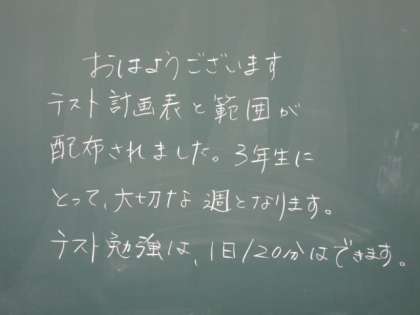 おはようございます
テスト計画表と範囲が
配布されました。3年生に
とって、大切な週となります。
テスト勉強は、1日120分はできます。